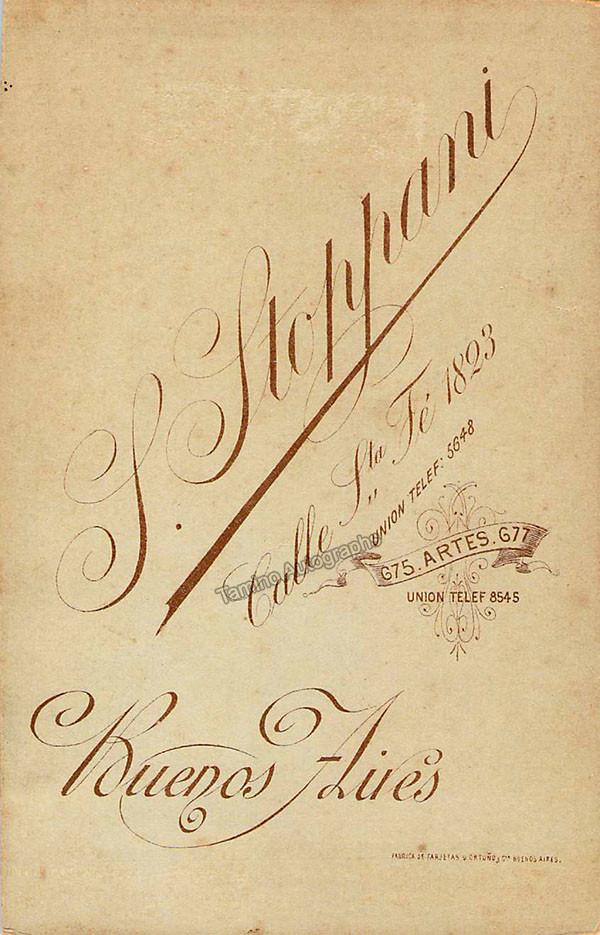 S. Stoppani
Calle Sta Fé 1823
UNION TELEF: 5648
675. ARTES. 677
UNION TELEF 8545
Tamino Autographs
Buenos Aires
FABRICA DE TARJETAS ORTUÑO y Cia BUENOS AIRES.